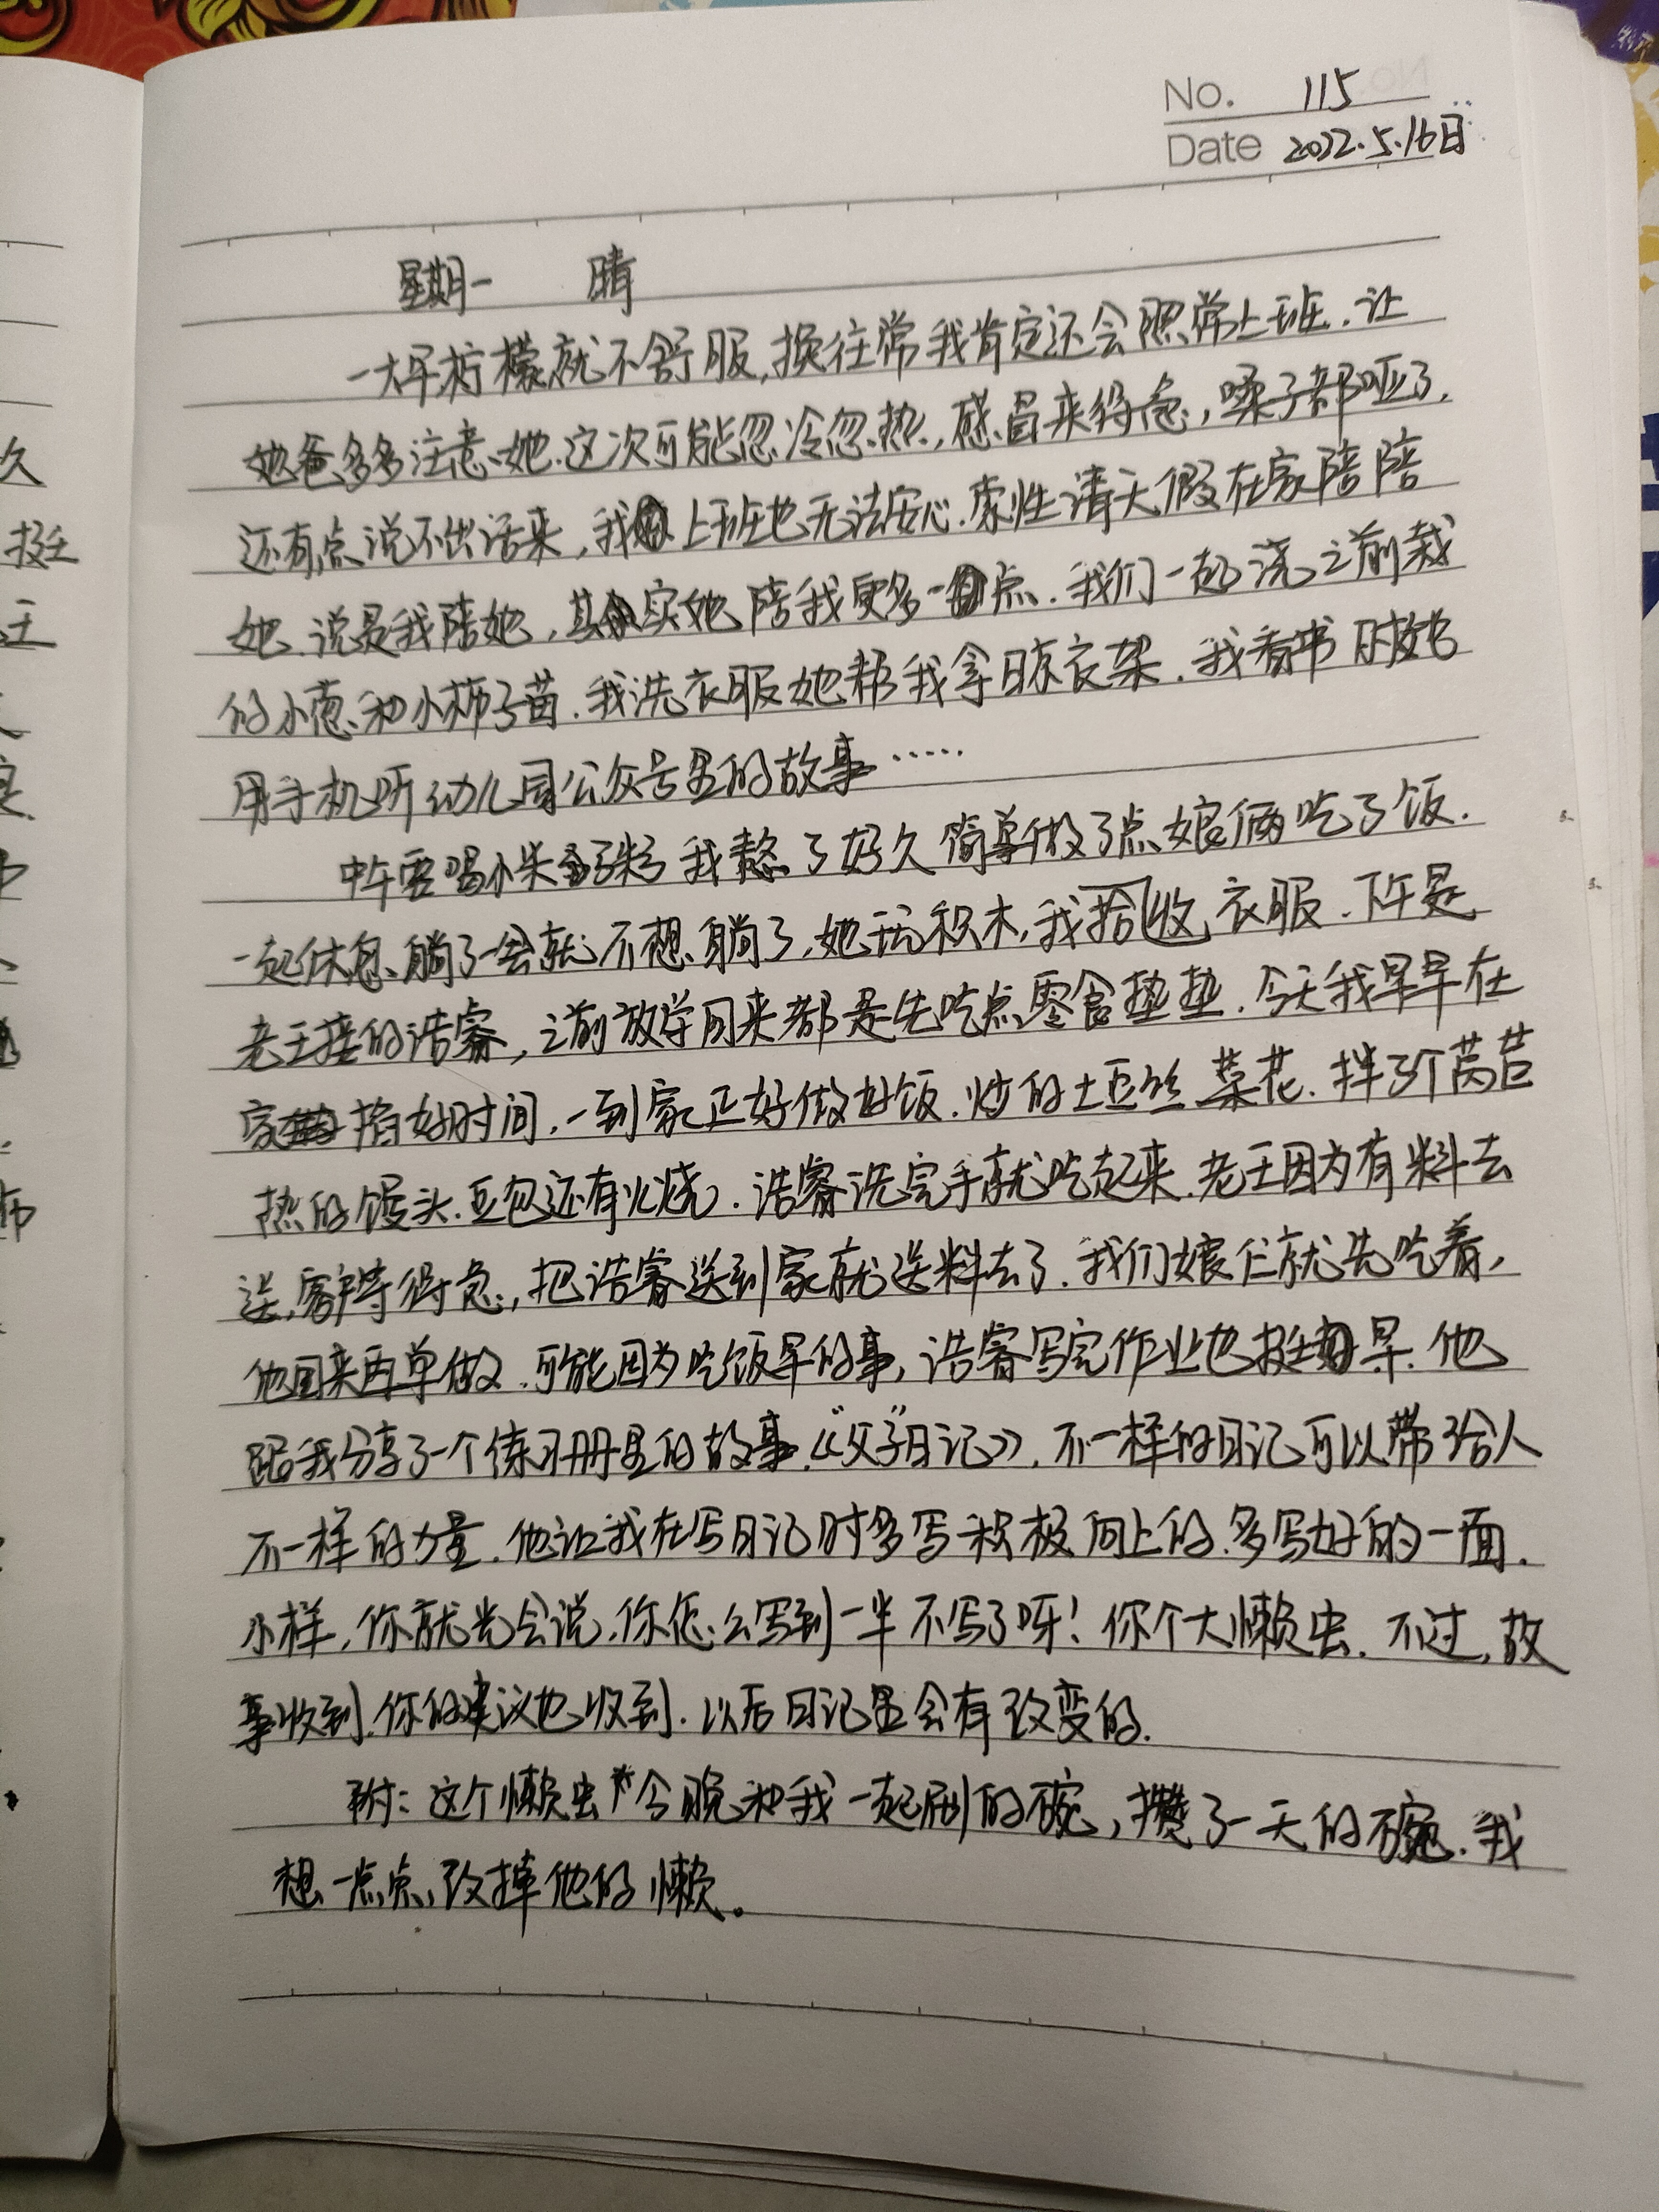 No. 115
Date 2022.5.16日
星期一 晴
一大早柠檬就不舒服,换往常我肯定还会照常上班.让
她爸多多注意她.这次可能忽冷忽热,感冒来得急,嗓子都哑了.
还有点说不出话来,我上班也无法安心.索性请天假在家陪陪
她.说是我陪她,其实她陪我更多一点.我们一起浇之前栽
的小葱和小柿子苗.我洗衣服她帮我拿晾衣架.我看书时她
用手机听幼儿园公众号里的故事……
中午要喝小米粥我熬了好久简单做了点娘俩吃了饭.
一起休息、躺了一会就不想躺了,她玩积木,我收拾衣服.下午是
老王接的浩睿,之前放学回来都是先吃点零食垫垫.今天我早早在
家掐好时间,一到家正好做好饭.炒的土豆丝菜花.拌了个莴苣
热的馒头.豆包还有火烧.浩睿洗完手就吃起来.老王因为有料去
送,客户等得急,把浩睿送到家就送料去了.我们娘仨就先吃着,
他回来再单做.可能因为吃饭早的事,浩睿写完作业也挺早.他
跟我分享了一个练习册里的故事.《“父子”日记》.不一样的日记可以带给人
不一样的力量.他让我在写日记时多写积极向上的.多写好的一面.
小样,你就光会说.你怎么写到一半不写了呀!你个大懒虫.不过,故
事收到.你的建议也收到.以后日记里会有改变的.
附:这个懒虫今晚和我一起刷的碗,攒了一天的碗.我
想一点点改掉他的懒。